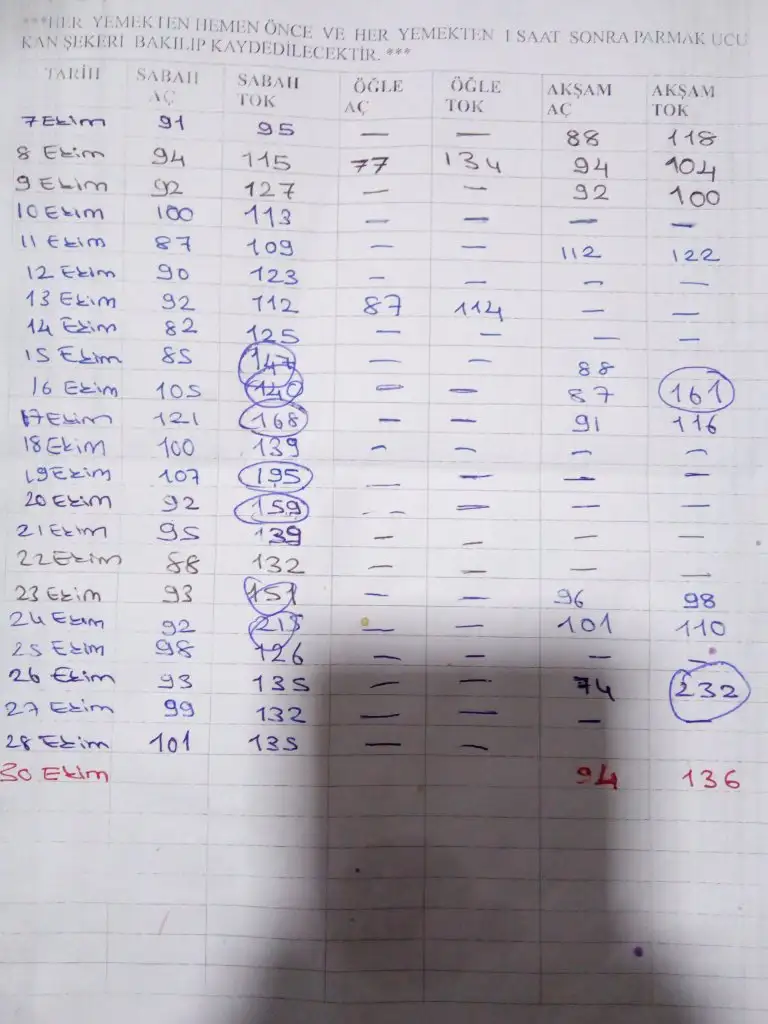 ***HER YEMEKTEN HEMEN ÖNCE VE HER YEMEKTEN 1 SAAT SONRA PARMAK UCU
KAN ŞEKERİ BAKILIP KAYDEDİLECEKTİR. ***
TARİH SABAH AÇ SABAH TOK ÖĞLE AÇ ÖĞLE TOK AKŞAM AÇ AKŞAM TOK
7 Ekim 91 95 — — 88 118
8 Ekim 94 115 77 134 94 104
9 Ekim 92 127 — — 92 100
10 Ekim 100 113 — — — —
11 Ekim 87 109 — — 112 122
12 Ekim 90 123 — — — —
13 Ekim 92 112 87 114 — —
14 Ekim 82 125 — — — —
15 Ekim 85 147 — — 88
16 Ekim 105 140 — — 87 161
17 Ekim 121 168 — — 91 116
18 Ekim 100 139 — — — —
19 Ekim 107 195 — — — —
20 Ekim 92 159 — — — —
21 Ekim 95 139 — — — —
22 Ekim 88 132 — — — —
23 Ekim 93 151 — — 96 98
24 Ekim 92 — — 101 110
25 Ekim 98 126 — — — —
26 Ekim 93 135 — — 74 232
27 Ekim 99 132 — — —
28 Ekim 101 135 — —
30 Ekim 94 136